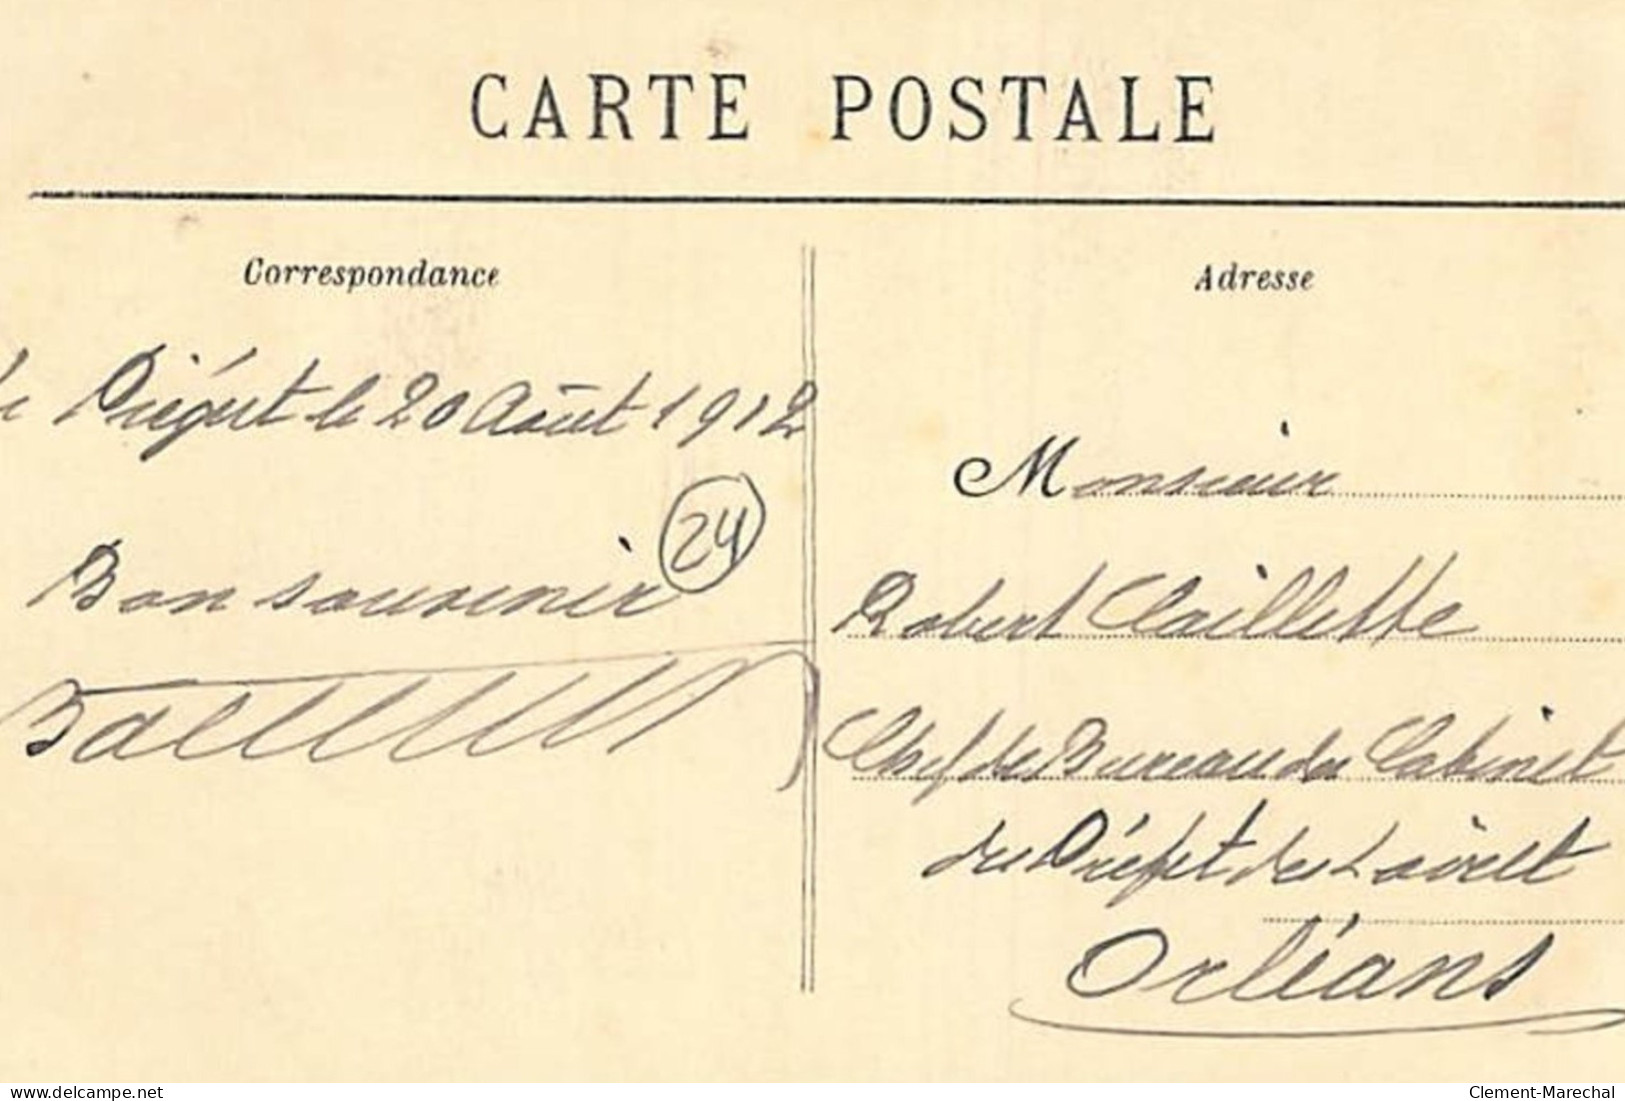 CARTE POSTALE
Correspondance
Piégut le 20 Août 1912
24
Bon souvenir
Adresse
Monsieur
Robert Caillette
Chef de Bureau du Cabinet
du Préfet du Loiret
Orléans
delcampe.net
Clement-Marechal